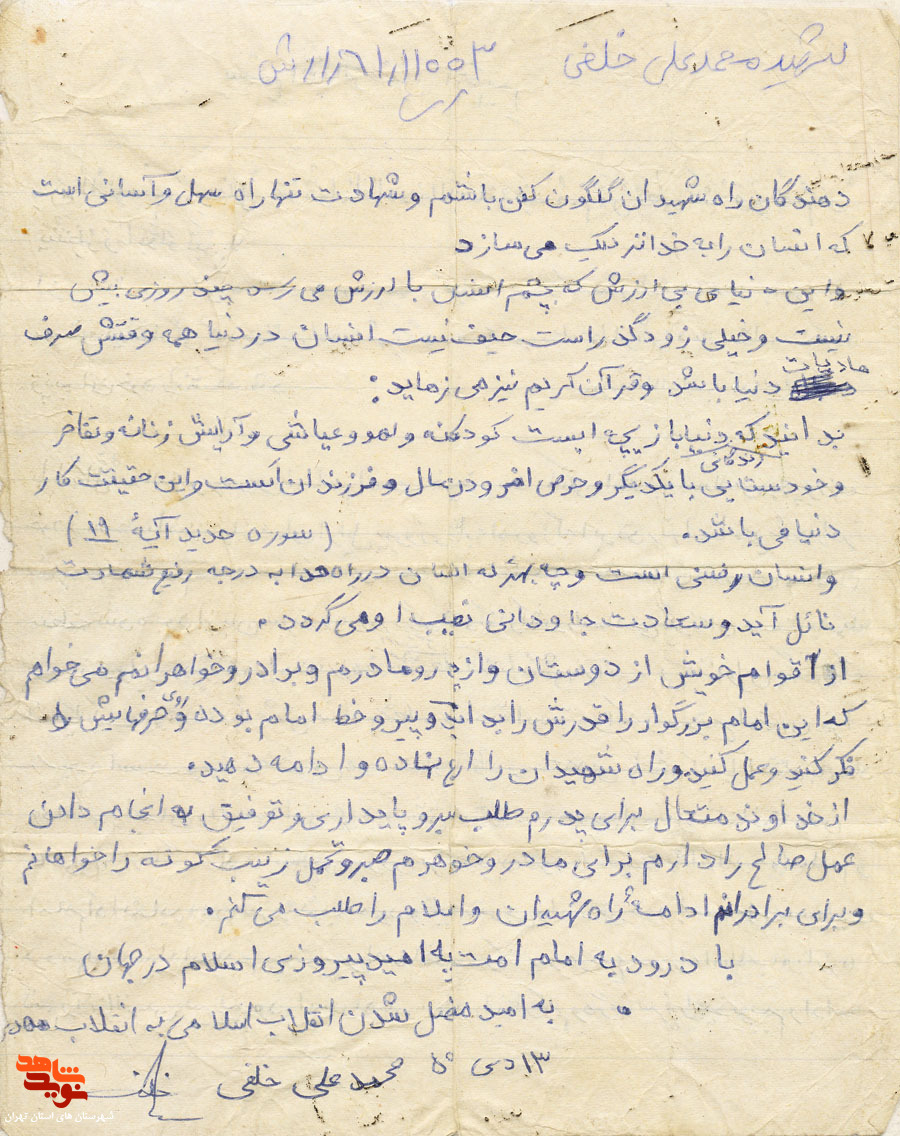 شهید محمدعلی خلفی ۱۱۵۵۳
دهندگان راه شهیدان گلگون کفن باشم و شهادت تنها راه سهل و آسانی است
که انسان را به خدا نزدیک می سازد
و این دنیای بی ارزش که بچشم انسان با ارزش می رسد چند روزی بیش
نیست و خیلی زودگذر است حیف نیست انسان در دنیا همه وقتش صرف
مادیات
دنیا باشد و قرآن کریم نیز می فرماید :
بدانید که دنیا بازیچه ایست کودکانه و لهو و عیاشی و آرایش زنانه و تفاخر
زندگانی
و خودستایی با یکدیگر و حرص افزودن مال و فرزندان است و این حقیقت کار
دنیا می باشد. ( سوره حدید آیۀ ۱۹ )
و انسان رفتنی است و چه بهتر که انسان در راه خدا به درجه رفیع شهادت
نائل آید و سعادت جاودانی نصیب او می گردد .
از اقوام خویش از دوستان و از پدر و مادرم و برادر و خواهرانم می خواهم
که این امام بزرگوار را قدرش را بدانید و پیرو خط امام بوده و روی حرفهایش
فکر کنید و عمل کنید و راه شهیدان را ارج نهاده و ادامه دهید.
از خداوند متعال برای پدرم طلب صبر و پایداری و توفیق به انجام دادن
عمل صالح را دارم برای مادر و خوهرم صبر و تحمل زینب گونه را خواهانم
و برای برادرانم ادامۀ راه شهیدان و اسلام را طلب می کنم.
با درود به امام امت به امید پیروزی اسلام در جهان
به امید متصل شدن انقلاب اسلامی به انقلاب
۱۳ دی محمد علی خلفی
نوید شاهد
شهرستان های استان تهران